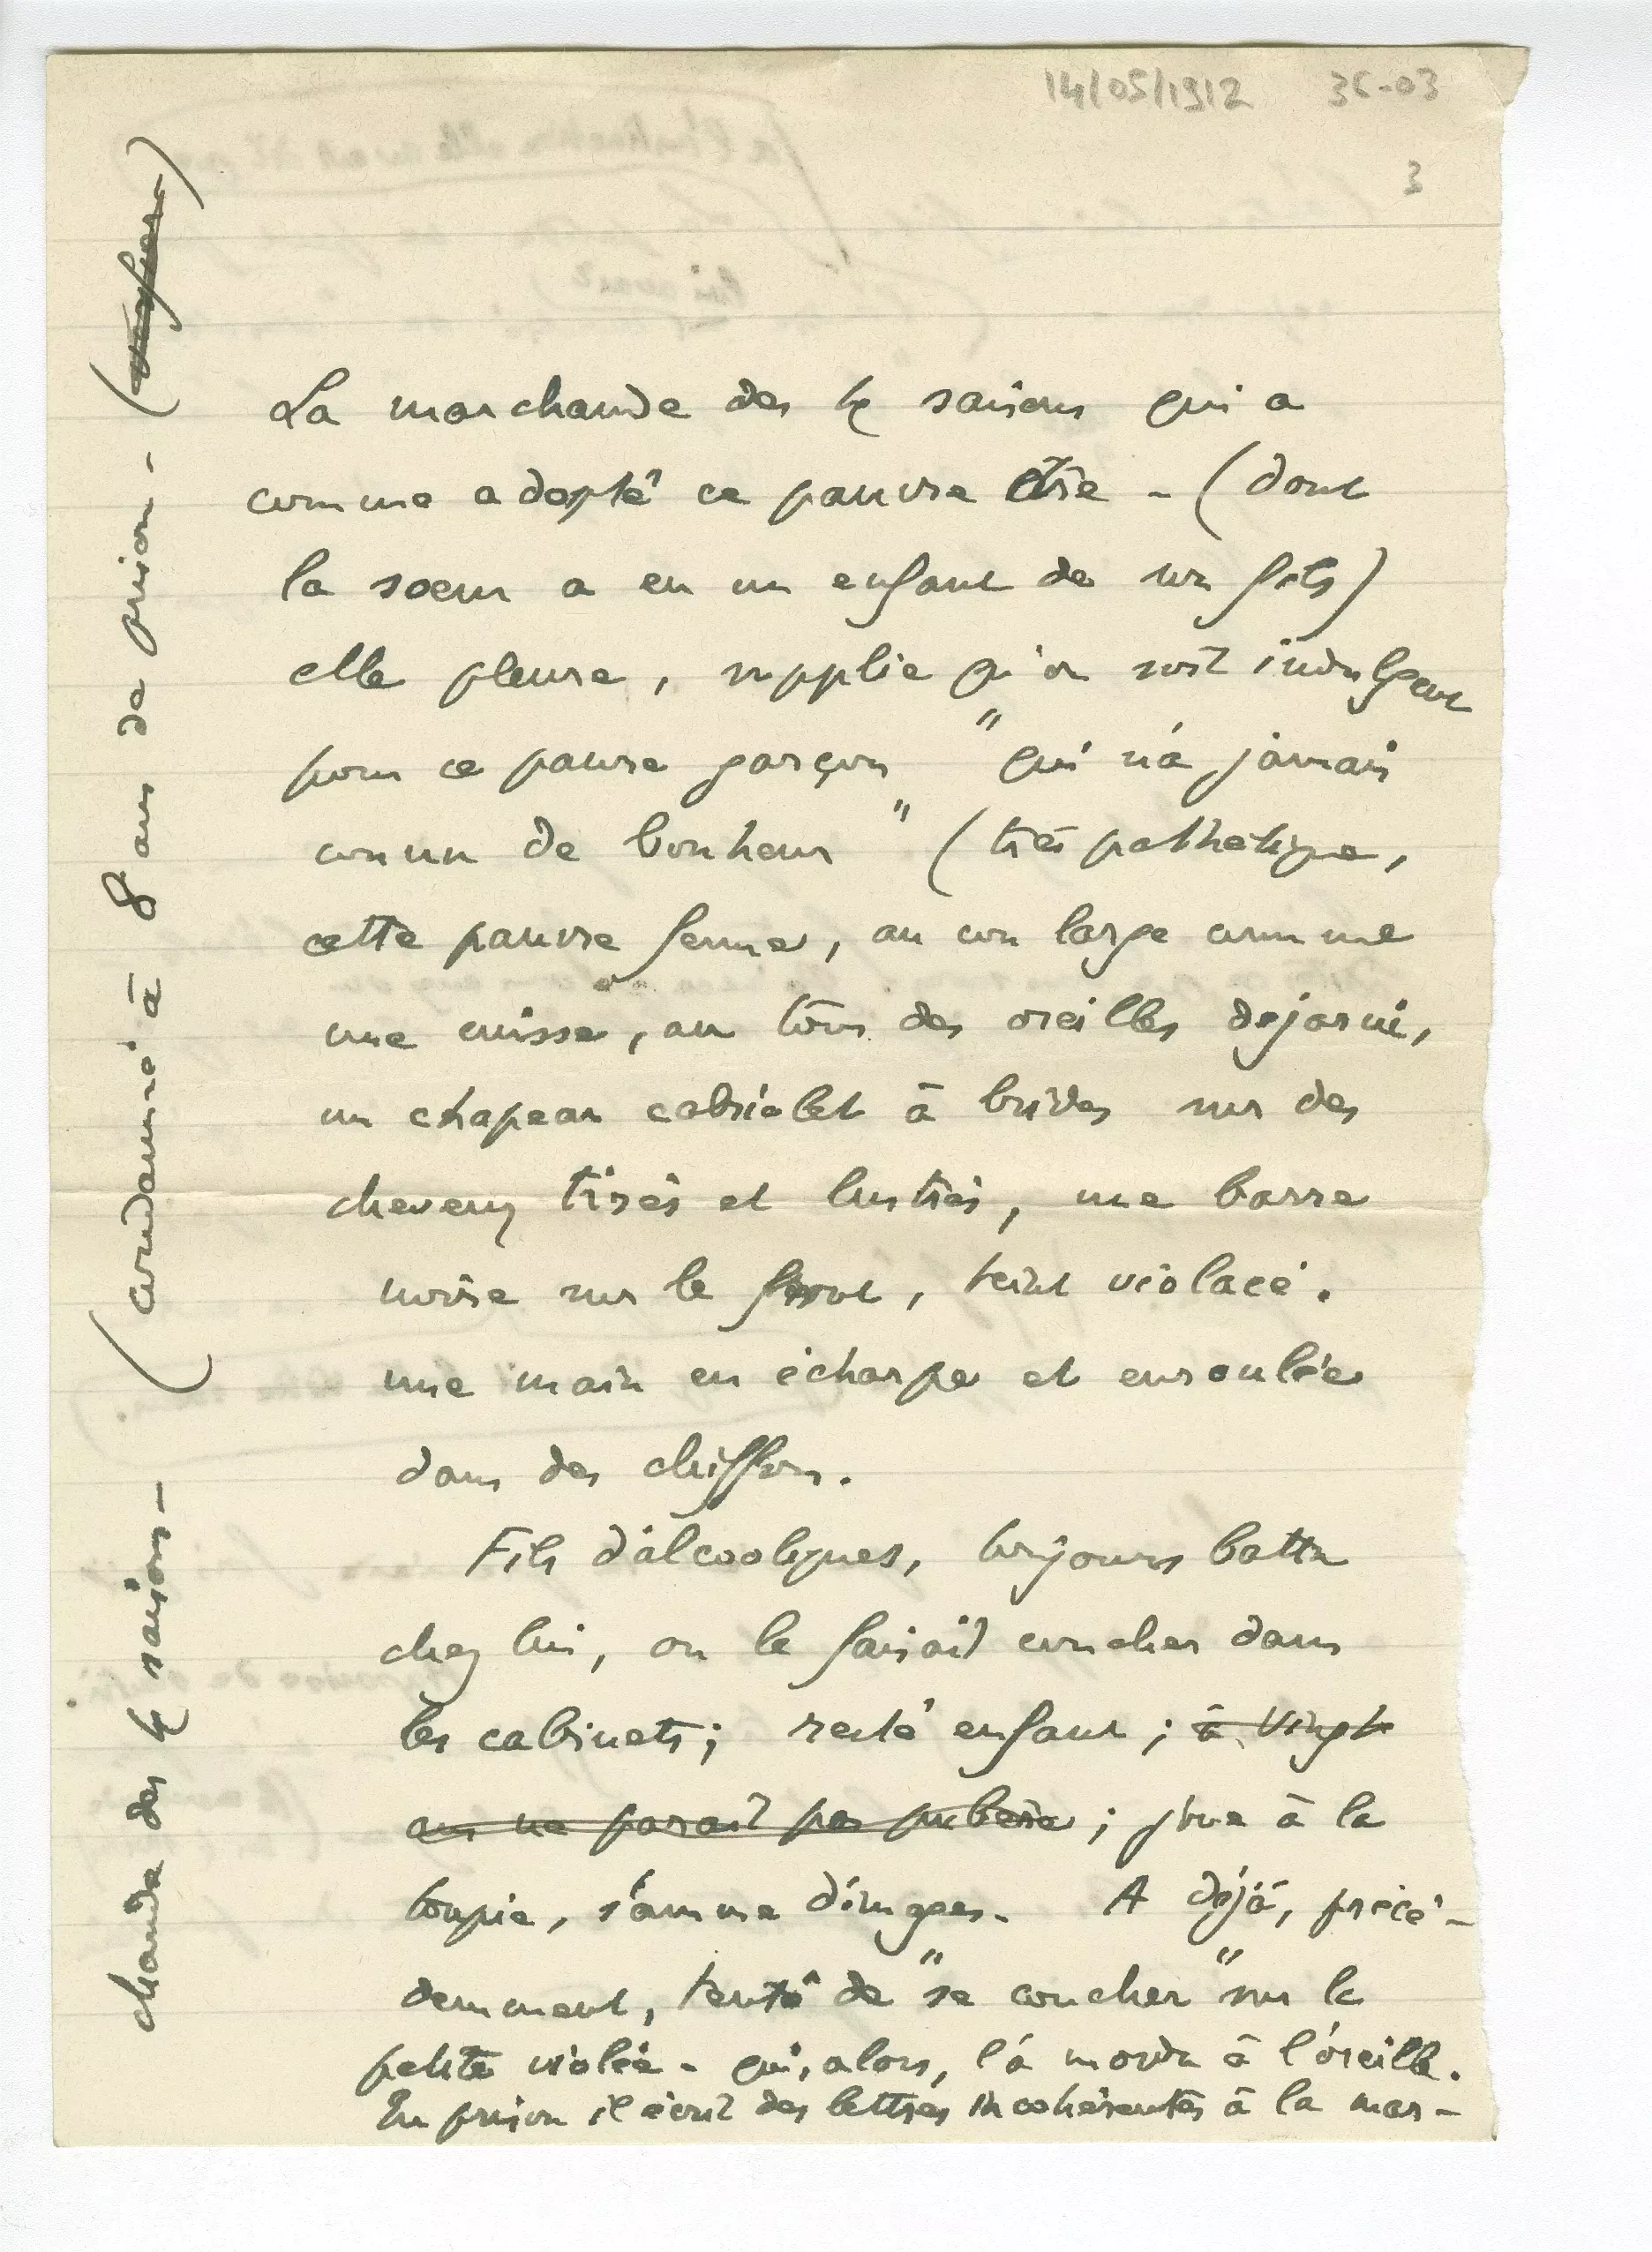 14/05/1912 36-03
3
La marchande des 4 saisons qui a
comme adopté ce pauvre être - (dont
la soeur a eu un enfant de son fils)
elle pleure, supplie qu'on soit indulgent
pour ce pauvre garçon "qui n'a jamais
connu de bonheur" (très pathétique,
cette pauvre femme, au cou large comme
une cuisse, au tour des oreilles dejarni,
un chapeau cabriolet à brides sur des
cheveux tirés et lustrés, une barre
noire sur le front, teint violacé.
une main en écharpe et enroulée
dans des chiffons.
Fils d'alcooliques, toujours battu
chez lui, on le faisait coucher dans
les cabinets; resté enfant; à vingt
ans ne parait pas pubère; joue à la
toupie, s'amuse d'images. A déjà, précé-
demment, tenté de "se coucher" sur la
petite violée - qui, alors, l'a mordu à l'oreille.
En prison il écrit des lettres incohérentes à la mar-
chande des 4 saisons - (condamné à 8 ans de prison - ( )